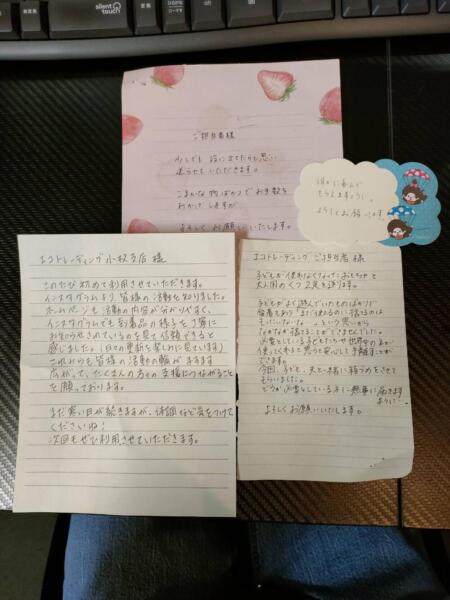 silent touch
ご担当者様
少しでも役に立てたらと思い
送らせていただきます。
こまかな物ばかりでお手数を
おかけしますが
よろしくお願いいたします。
誰かに喜んで
もらえますように。
よろしくお願いします。
エコトレーディング小牧支店 様
このたび初めて利用させていただきます。
インスタグラムより、皆様の活動を知りました。
ホームページも活動の内容が分かりやすく、
インスタグラムでも到着品の様子を丁寧に
お知らせされているのを見て信頼できると
感じました。(日々の更新を楽しみに見ています)
これからも皆様の活動の輪がますます
広がって、たくさんの方々の支援につながること
を願っております。
まだ寒い日が続きますが、体調など気をつけて
くださいね！
次回もぜひ利用させていただきます。
エコトレーディング ご担当者 様
子どもが使わなくなったおもちゃと
大人用のくつ2足を送ります。
子どもがよく遊んでいたものばかりで
まだ使えるのに捨てるのは
もったいないな という思いから
なかなか捨てることができませんでした。
必要としている子どもたちや世界中の方が
使ってくれると思うと安心して
今回、子ども、夫と一緒に箱づめをさせて
もらいました。
どうか必要としている方に無事に届きます
ように…
よろしくお願いいたします。